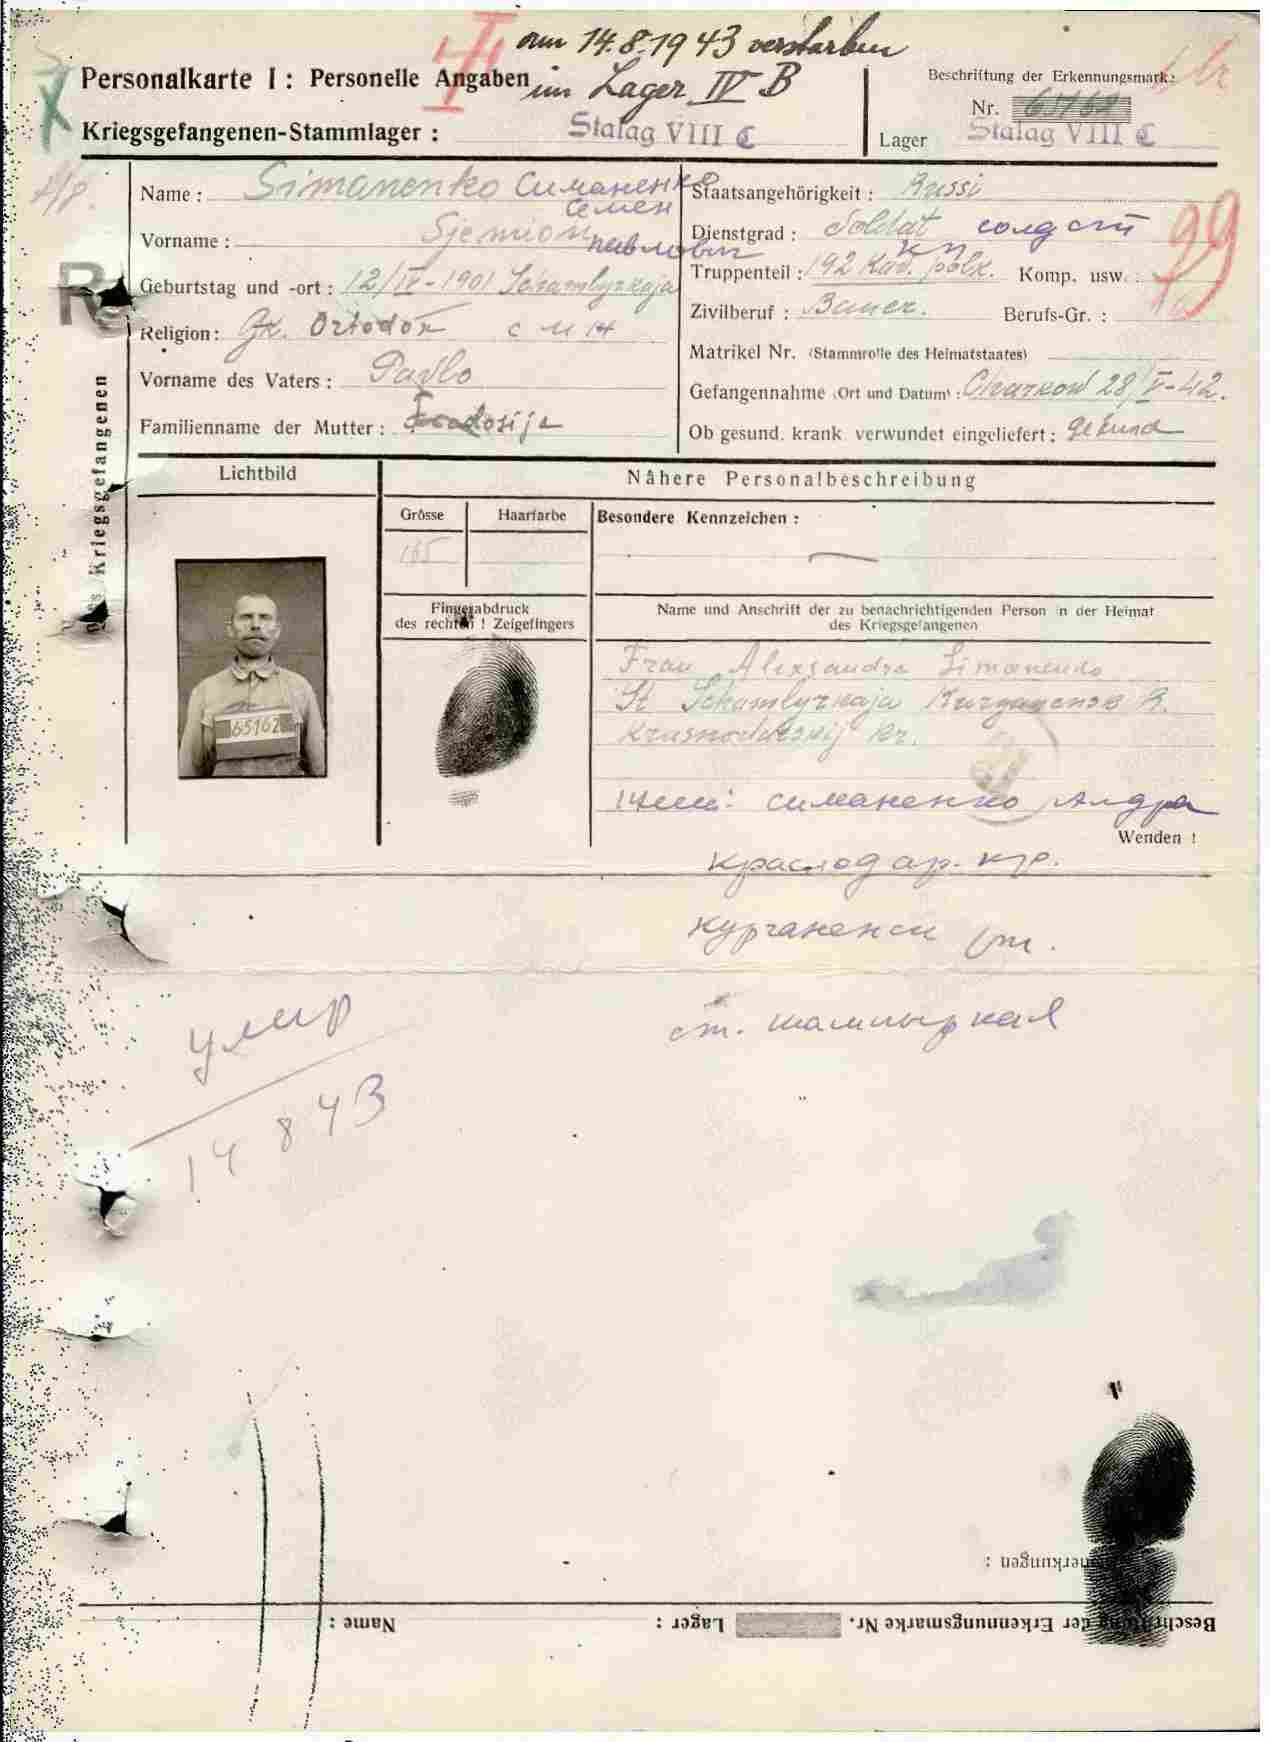 am 14.8.1943 verstorben
Personalkarte I: Personelle Angaben im Lager IV B
Beschriftung der Erkennungsmarke
Nr. 65162
Kriegsgefangenen-Stammlager: Stalag VIII C
Lager Stalag VIII C
Name: Simanenko Симаненко
Семен
Vorname: Sjemion павлович
Geburtstag und -ort: 12/IV-1901 Schamlyrkaja
Religion: Gk. Ortodox
Vorname des Vaters: Pavlo
Familienname der Mutter: Feodosija
Staatsangehörigkeit: Russi
Dienstgrad: Soldat солдат
к п
Truppenteil: 192 Kav. polk. Komp. usw.:
99
Zivilberuf: Bauer. Berufs-Gr.:
Matrikel Nr. (Stammrolle des Heimatstaates)
Gefangennahme (Ort und Datum): Charkow 28/V-42.
Ob gesund, krank, verwundet eingeliefert: gesund
des Kriegsgefangenen
Lichtbild
Nähere Personalbeschreibung
Grösse
Haarfarbe
Besondere Kennzeichen:
165
65162
Fingerabdruck
des rechten ! Zeigefingers
Name und Anschrift der zu benachrichtigenden Person in der Heimat
des Kriegsgefangenen
Frau Alexsandra Simanenko
St Schamlyrkaja Kurganensk R.
Krasnodarskij Kr.
симаненко
Wenden !
Краснодар. кр.
Курганенси
ст. шамлыркая
умир
14 8 43
Bemerkungen:
Beschriftung der Erkennungsmarke Nr. Lager: Name: